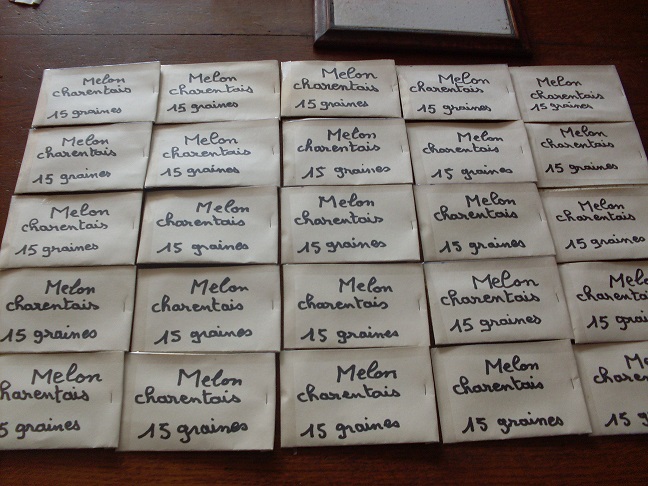 Melon
charentais
15 graines
Melon
charentais
15 graines
Melon
charentais
15 graines
Melon
charentais
15 graines
Melon
charentais
15 graines
Melon
charentais
15 graines
Melon
charentais
15 graines
Melon
charentais
15 graines
Melon
charentais
15 graines
Melon
charentais
15 graines
Melon
charentais
15 graines
Melon
charentais
15 graines
Melon
charentais
15 graines
Melon
charentais
15 graines
Melon
charentais
15 graines
Melon
charentais
15 graines
Melon
charentais
15 graines
Melon
charentais
15 graines
Melon
charentais
15 graines
Melo
charentai
15 grai
Melon
charentais
5 graines
Melon
charentais
15 graines
Melon
charentais
15 graines
Melon
charentais
15 graines
Me
charen
15 g